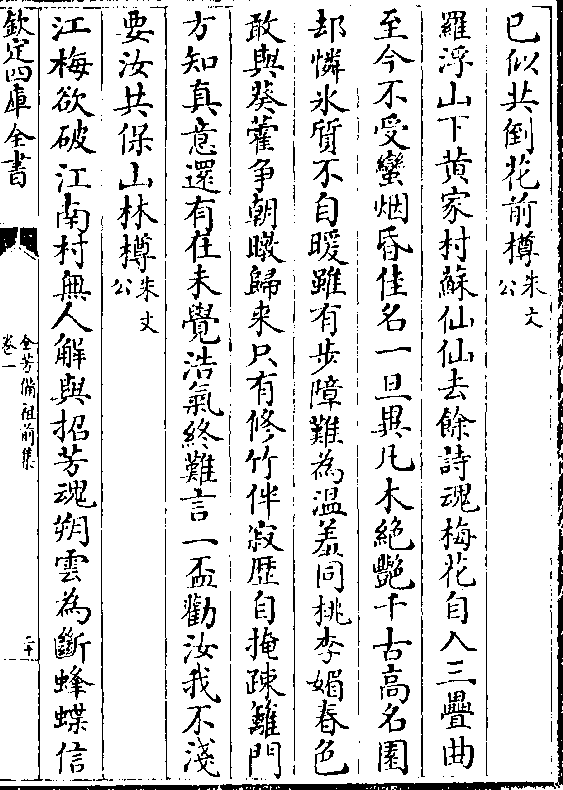 已似共倒花前樽朱文公
羅浮山下黄家村蘇仙仙去餘詩魂梅花自入三疊曲
至今不受蠻烟昏佳名一旦異凡木絶艷千古高名園
却憐氷質不自暖雖有步障難為温羞同桃李媚春色
敢與葵藿争朝暾歸來只有修竹伴寂歴自掩疎籬門
方知真意還有在未覺浩氣終難言一盃勸汝我不淺
要汝共保山林樽朱文公
江梅欲破江南村無人解與招芳魂朔雲為斷蜂蝶信
欽定四庫全書
全芳備祖前集
卷一
二十